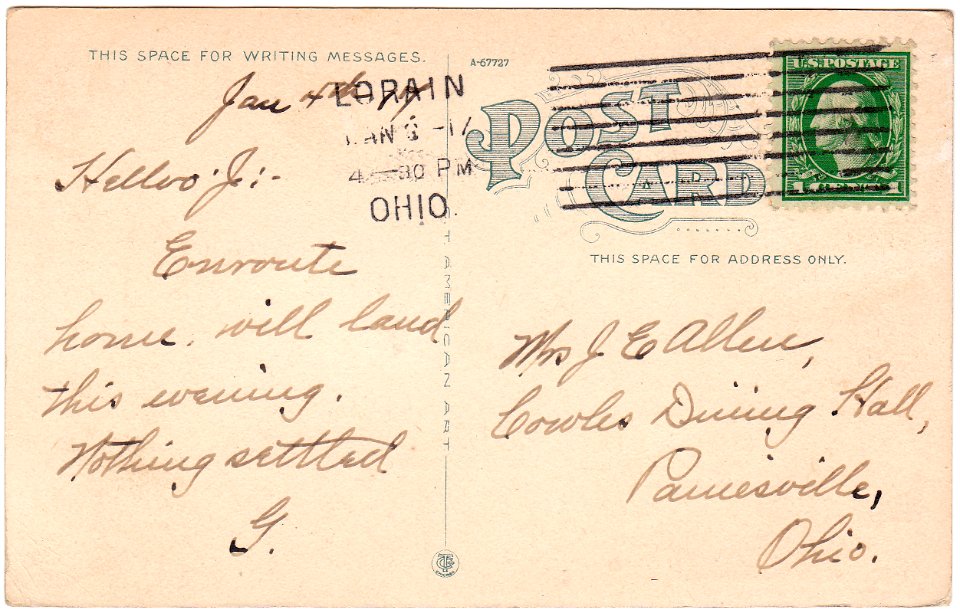 THIS SPACE FOR WRITING MESSAGES.
A-67727
Jan 4th
LORAIN
JAN -17
4 30 PM
OHIO
POST CARD
U.S. POSTAGE
THIS SPACE FOR ADDRESS ONLY.
Helloo J:-
Enroute
home. will land
this evening.
Nothing settled
G.
T AMERICAN ART
Mrs J E Allen,
Cowles Dining Hall,
Painesville,
Ohio.